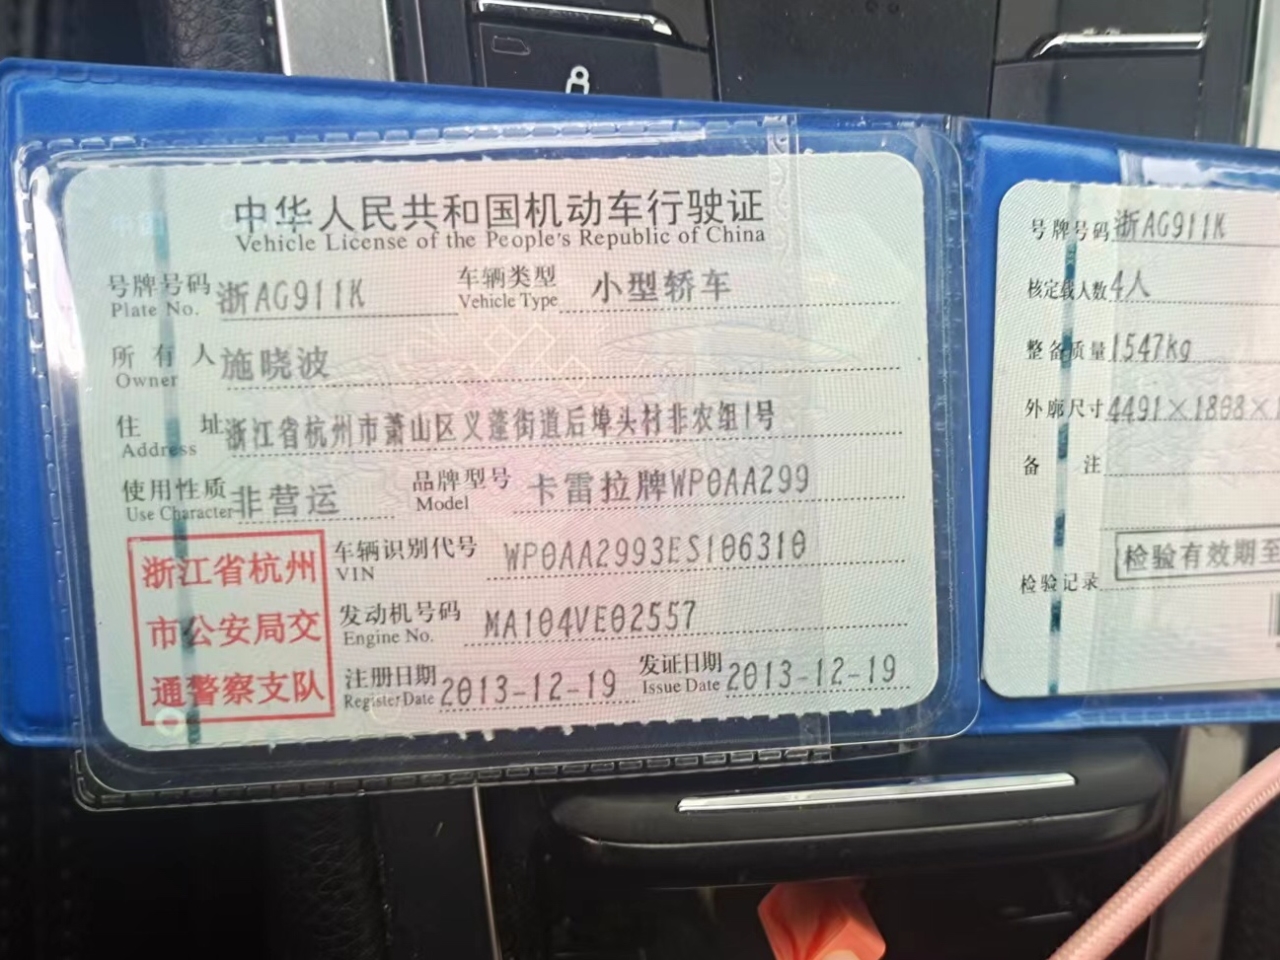 中华人民共和国机动车行驶证
Vehicle License of the People's Republic of China
号牌号码 浙AG911K 车辆类型 小型轿车
Plate No. Vehicle Type
所有人 施晓波
Owner
住址 浙江省杭州市萧山区义蓬街道后埠头村非农组1号
Address
使用性质 非营运 品牌型号 卡雷拉牌WP0AA299
Use Character Model
浙江省杭州
市公安局交
通警察支队
车辆识别代号 WP0AA2993ES106310
VIN
发动机号码 MA104VE02557
Engine No.
注册日期 2013-12-19 发证日期 2013-12-19
Register Date Issue Date
号牌号码 浙AG911K
核定载人数 4人
整备质量 1547kg
外廓尺寸 4491×1808×1
备注
检验有效期至
检验记录